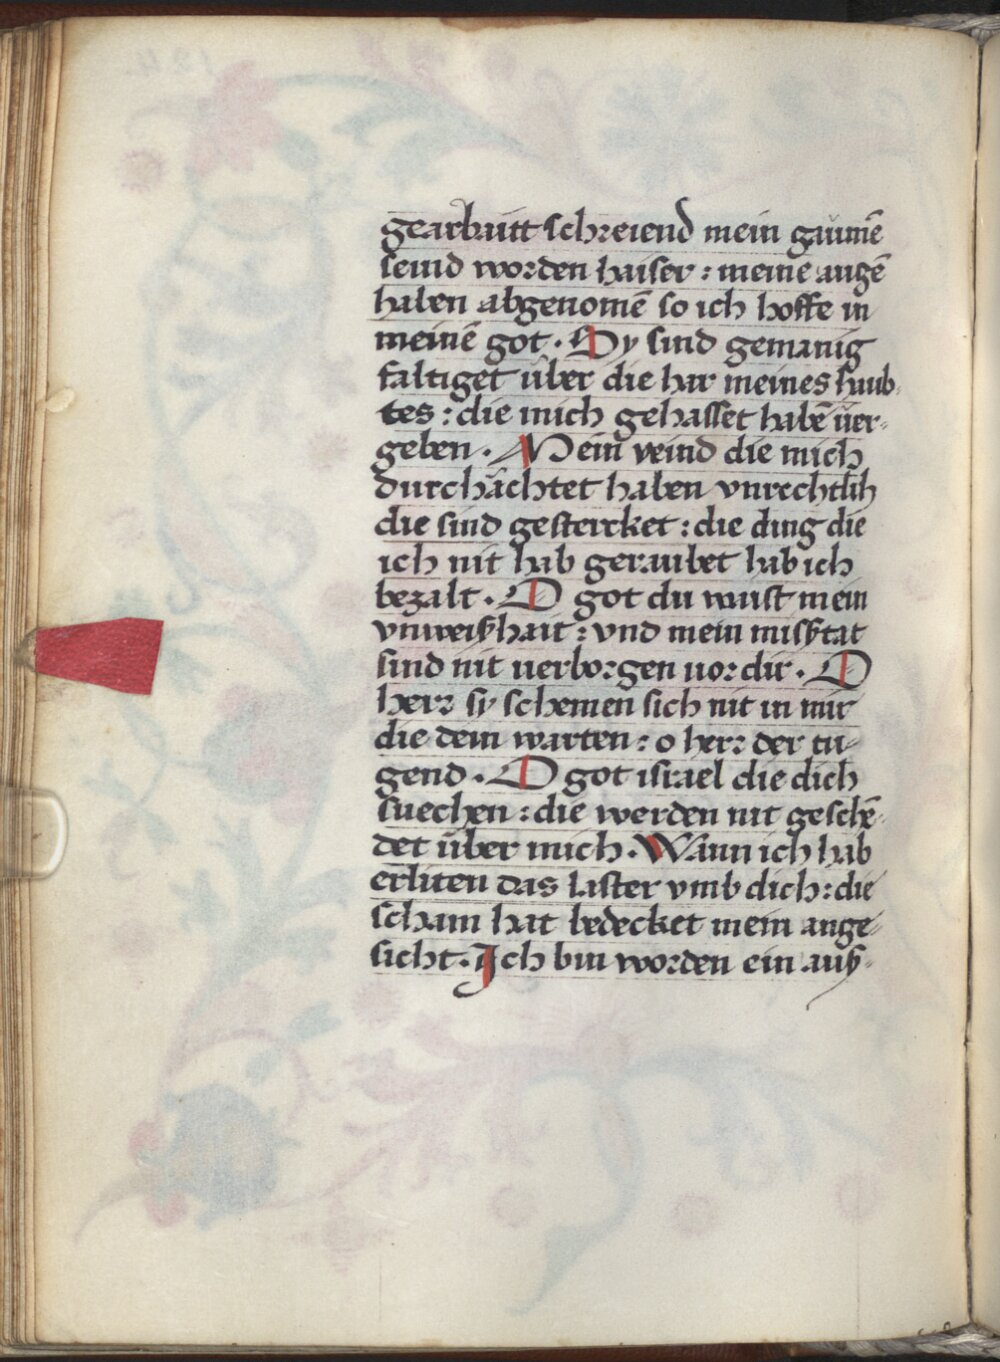 gearbaitt schreiend mein gaumē
seind worden haiser : meine augē
haben abgenomē so ich hoffe in
meinē got · Sy sind gemanig
faltiget über die har meines haub-
tes : die mich gehasset habē uer-
geben · Mein veind die mich
durchächtet haben vnrechtlich
die sind gestercket : die ding die
ich nit hab geraubet hab ich
bezalt · O got du waist mein
vnweißhait : vnd mein mißtat
sind nit uerborgen uor dir · O
herr sy schemen sich nit in mir
die dein warten : o herr der tu-
gend · O got israel die dich
suechen : die werden nit geschē-
det über mich · Wann ich hab
erliten das laster vmb dich : die
scham hat bedecket mein ange-
sicht · Ich bin worden ein auß-